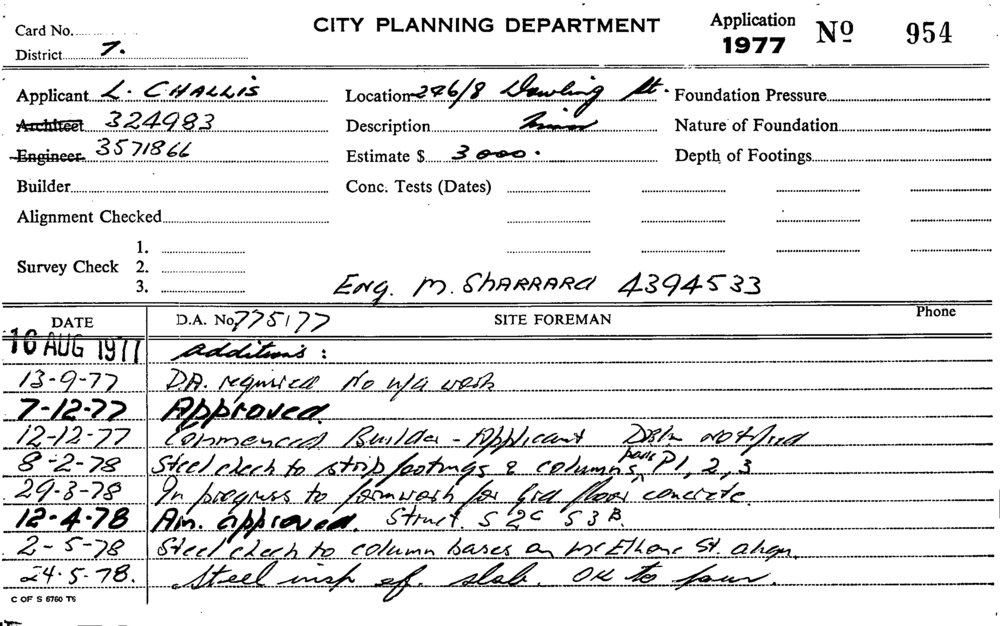 Card No.
CITY PLANNING DEPARTMENT
Application 1977 No 954
District 7.
Applicant L. CHALLIS
Location 296/8 Dowling St.
Foundation Pressure
Architect 324983
Description
Nature of Foundation
Engineer 3571866
Estimate $ 3000.
Depth of Footings
Builder
Conc. Tests (Dates)
Alignment Checked
Survey Check 1. 2. 3.
Eng. M. SHARRARD 4394533
DATE D.A. No 775177 SITE FOREMAN Phone
16 AUG 1977 additions:
13-9-77 DA. required No w/a work
7-12-77 Approved.
12-12-77 Commenced Builder - Applicant notified
8-2-78 Steel check to strip footings & columns, P1, 2, 3
29-3-78 In progress to formwork for Grd floor concrete.
12-4-78 Am. approved. Struct. S 2C S 3B.
2-5-78 Steel check to column bases on McElhone St. align.
24.5.78. Steel insp of. slab. OK to pour.
C OF S 6760 T6